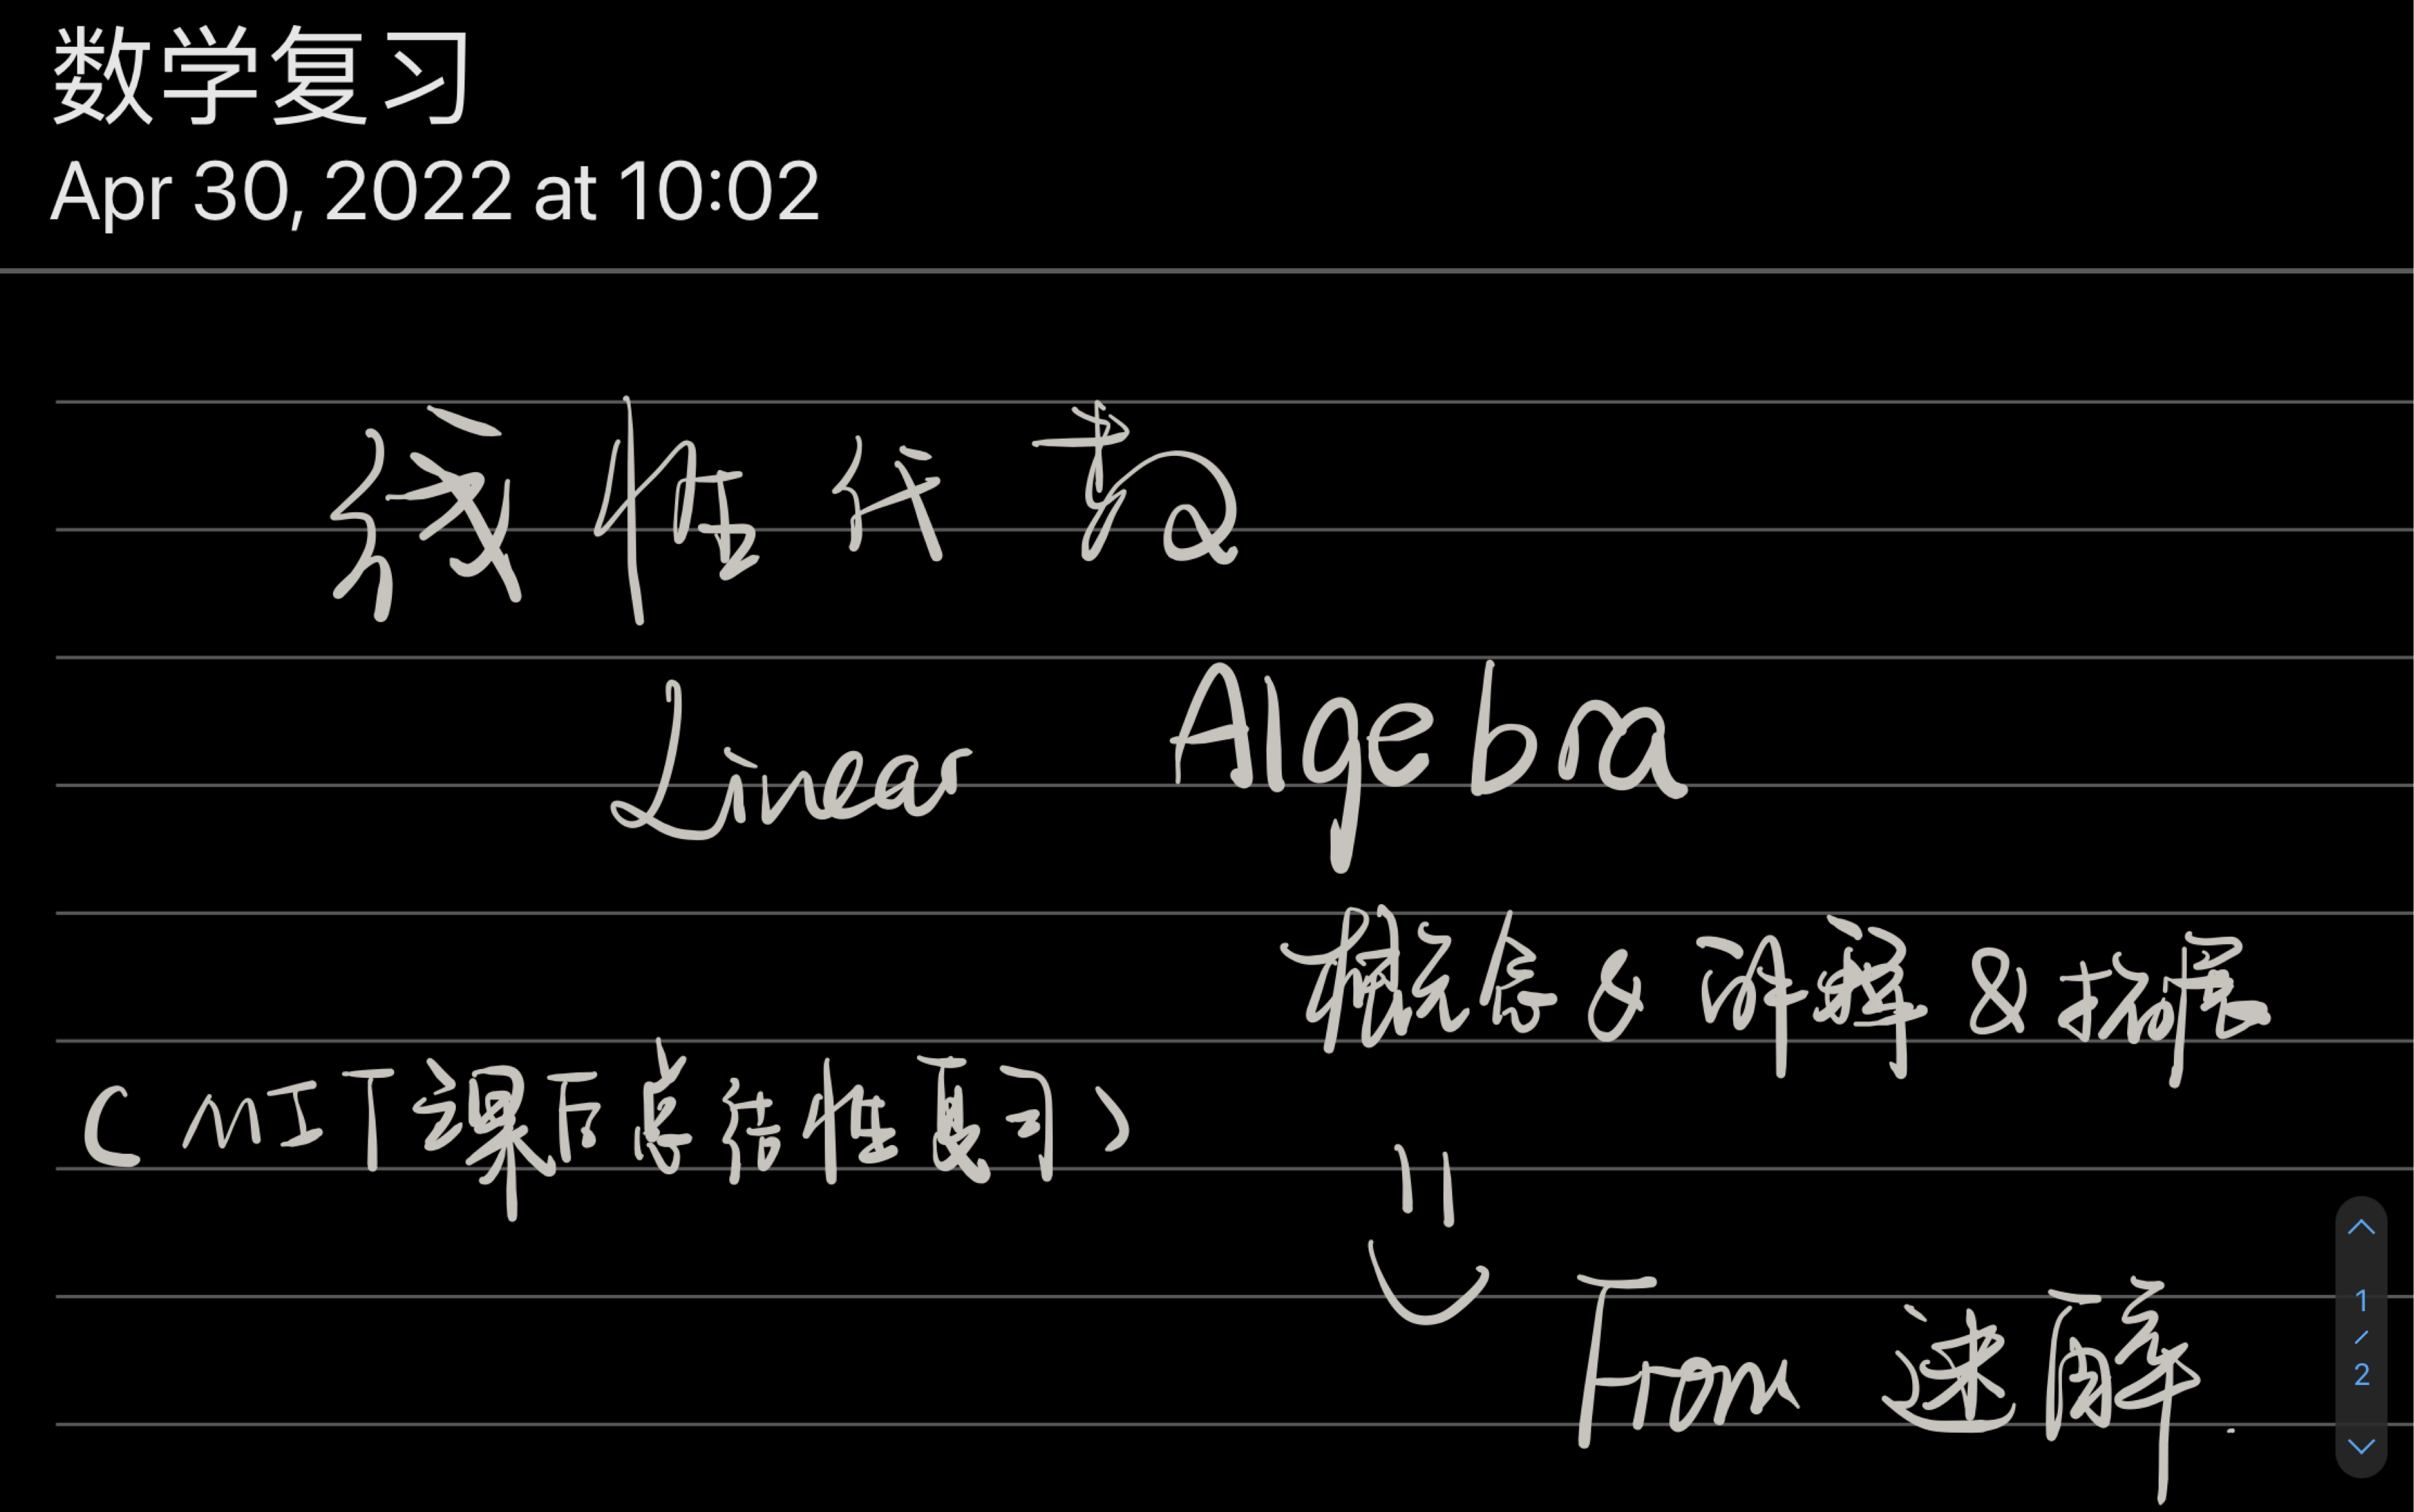 数学复习
Apr 30, 2022 at 10:02
线性代数
Linear Algebra
概念 & 详释 & 拓展
(MIT课后总结性复习)
From 速解.
1
/
2